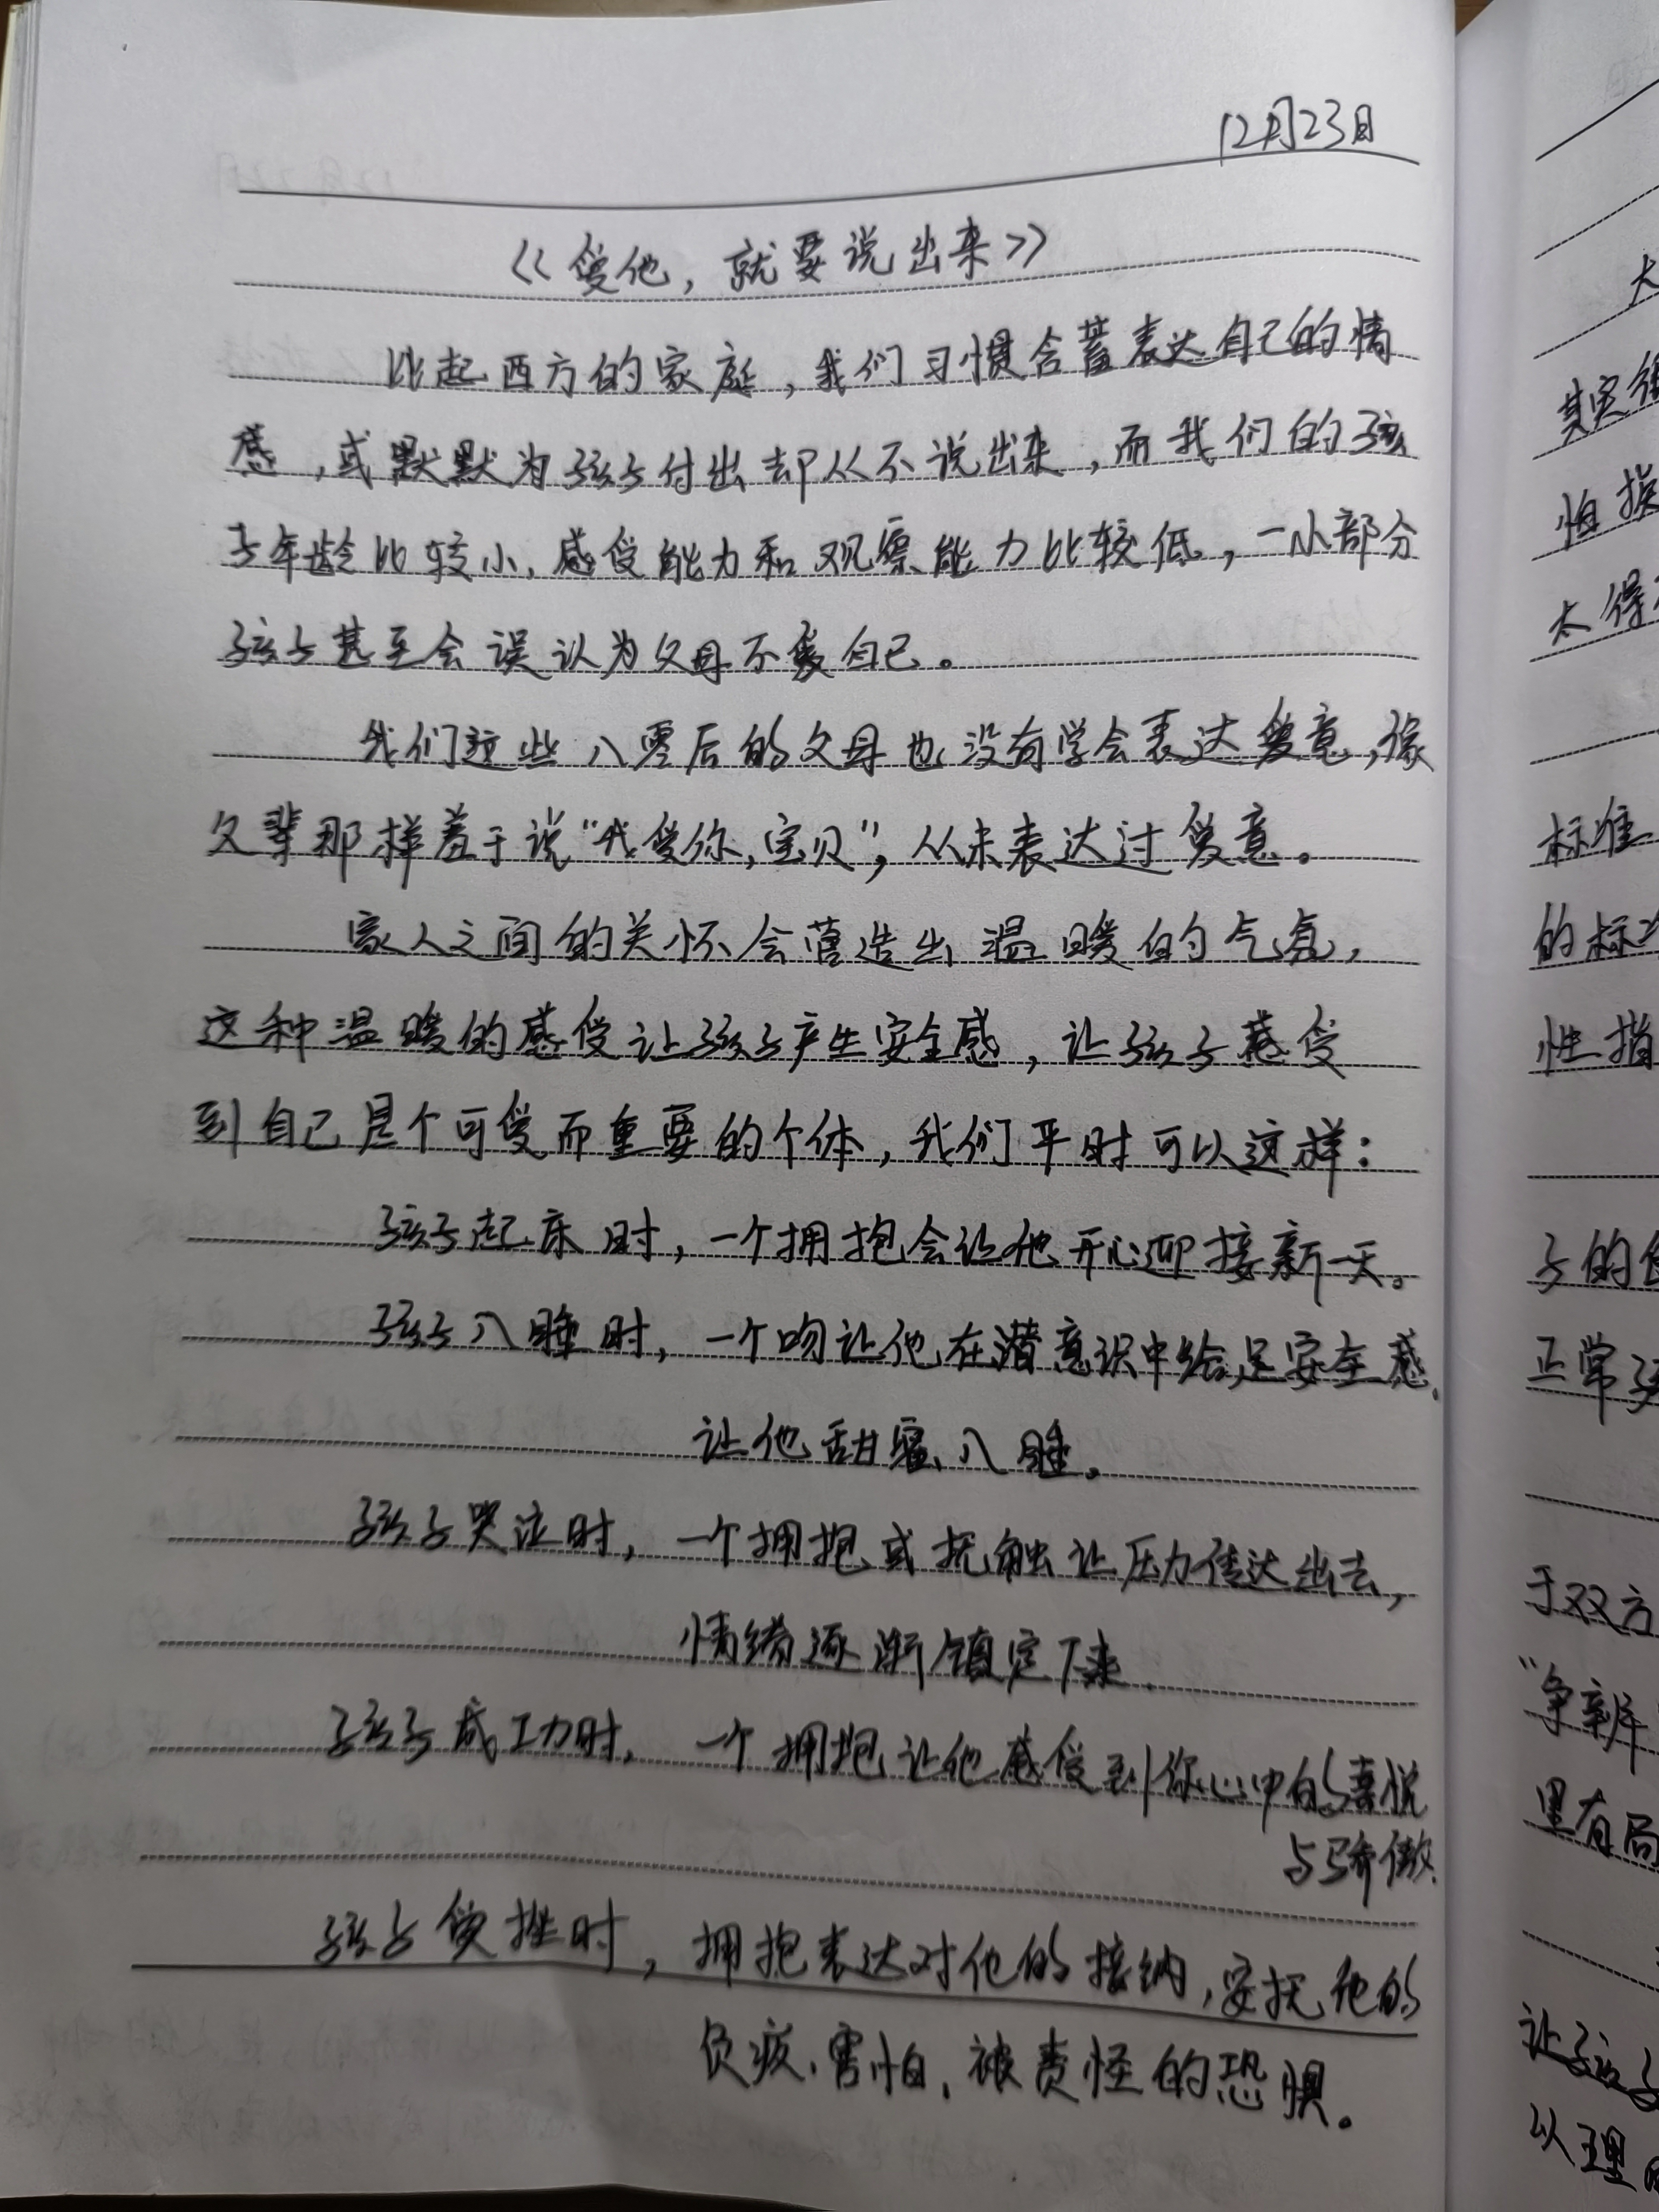 12月23日
《爱他，就要说出来》
比起西方的家庭，我们习惯含蓄表达自己的情
感，或默默为孩子付出却从不说出来，而我们的孩
子年龄比较小，感受能力和观察能力比较低，一小部分
孩子甚至会误认为父母不爱自己。
我们这些八零后的父母也没有学会表达爱意，像
父辈那样羞于说“我爱你，宝贝”，从未表达过爱意。
家人之间的关怀会营造出温暖的气氛，
这种温暖的感受让孩子产生安全感，让孩子感受
到自己是个可爱而重要的个体，我们平时可以这样：
孩子起床时，一个拥抱会让他开心迎接新一天。
孩子入睡时，一个吻让他在潜意识中给足安全感，
让他甜蜜入睡。
孩子哭泣时，一个拥抱或抚触让压力传达出去，
情绪逐渐镇定下来。
孩子成功时，一个拥抱让他感受到你心中的喜悦
与骄傲。
孩子受挫时，拥抱表达对他的接纳，安抚他的
负疚、害怕、被责怪的恐惧。
其实
怕
太得
标准
的标
性指
子的
正常孩
于双方
“争辩
里有局
让孩子
以理